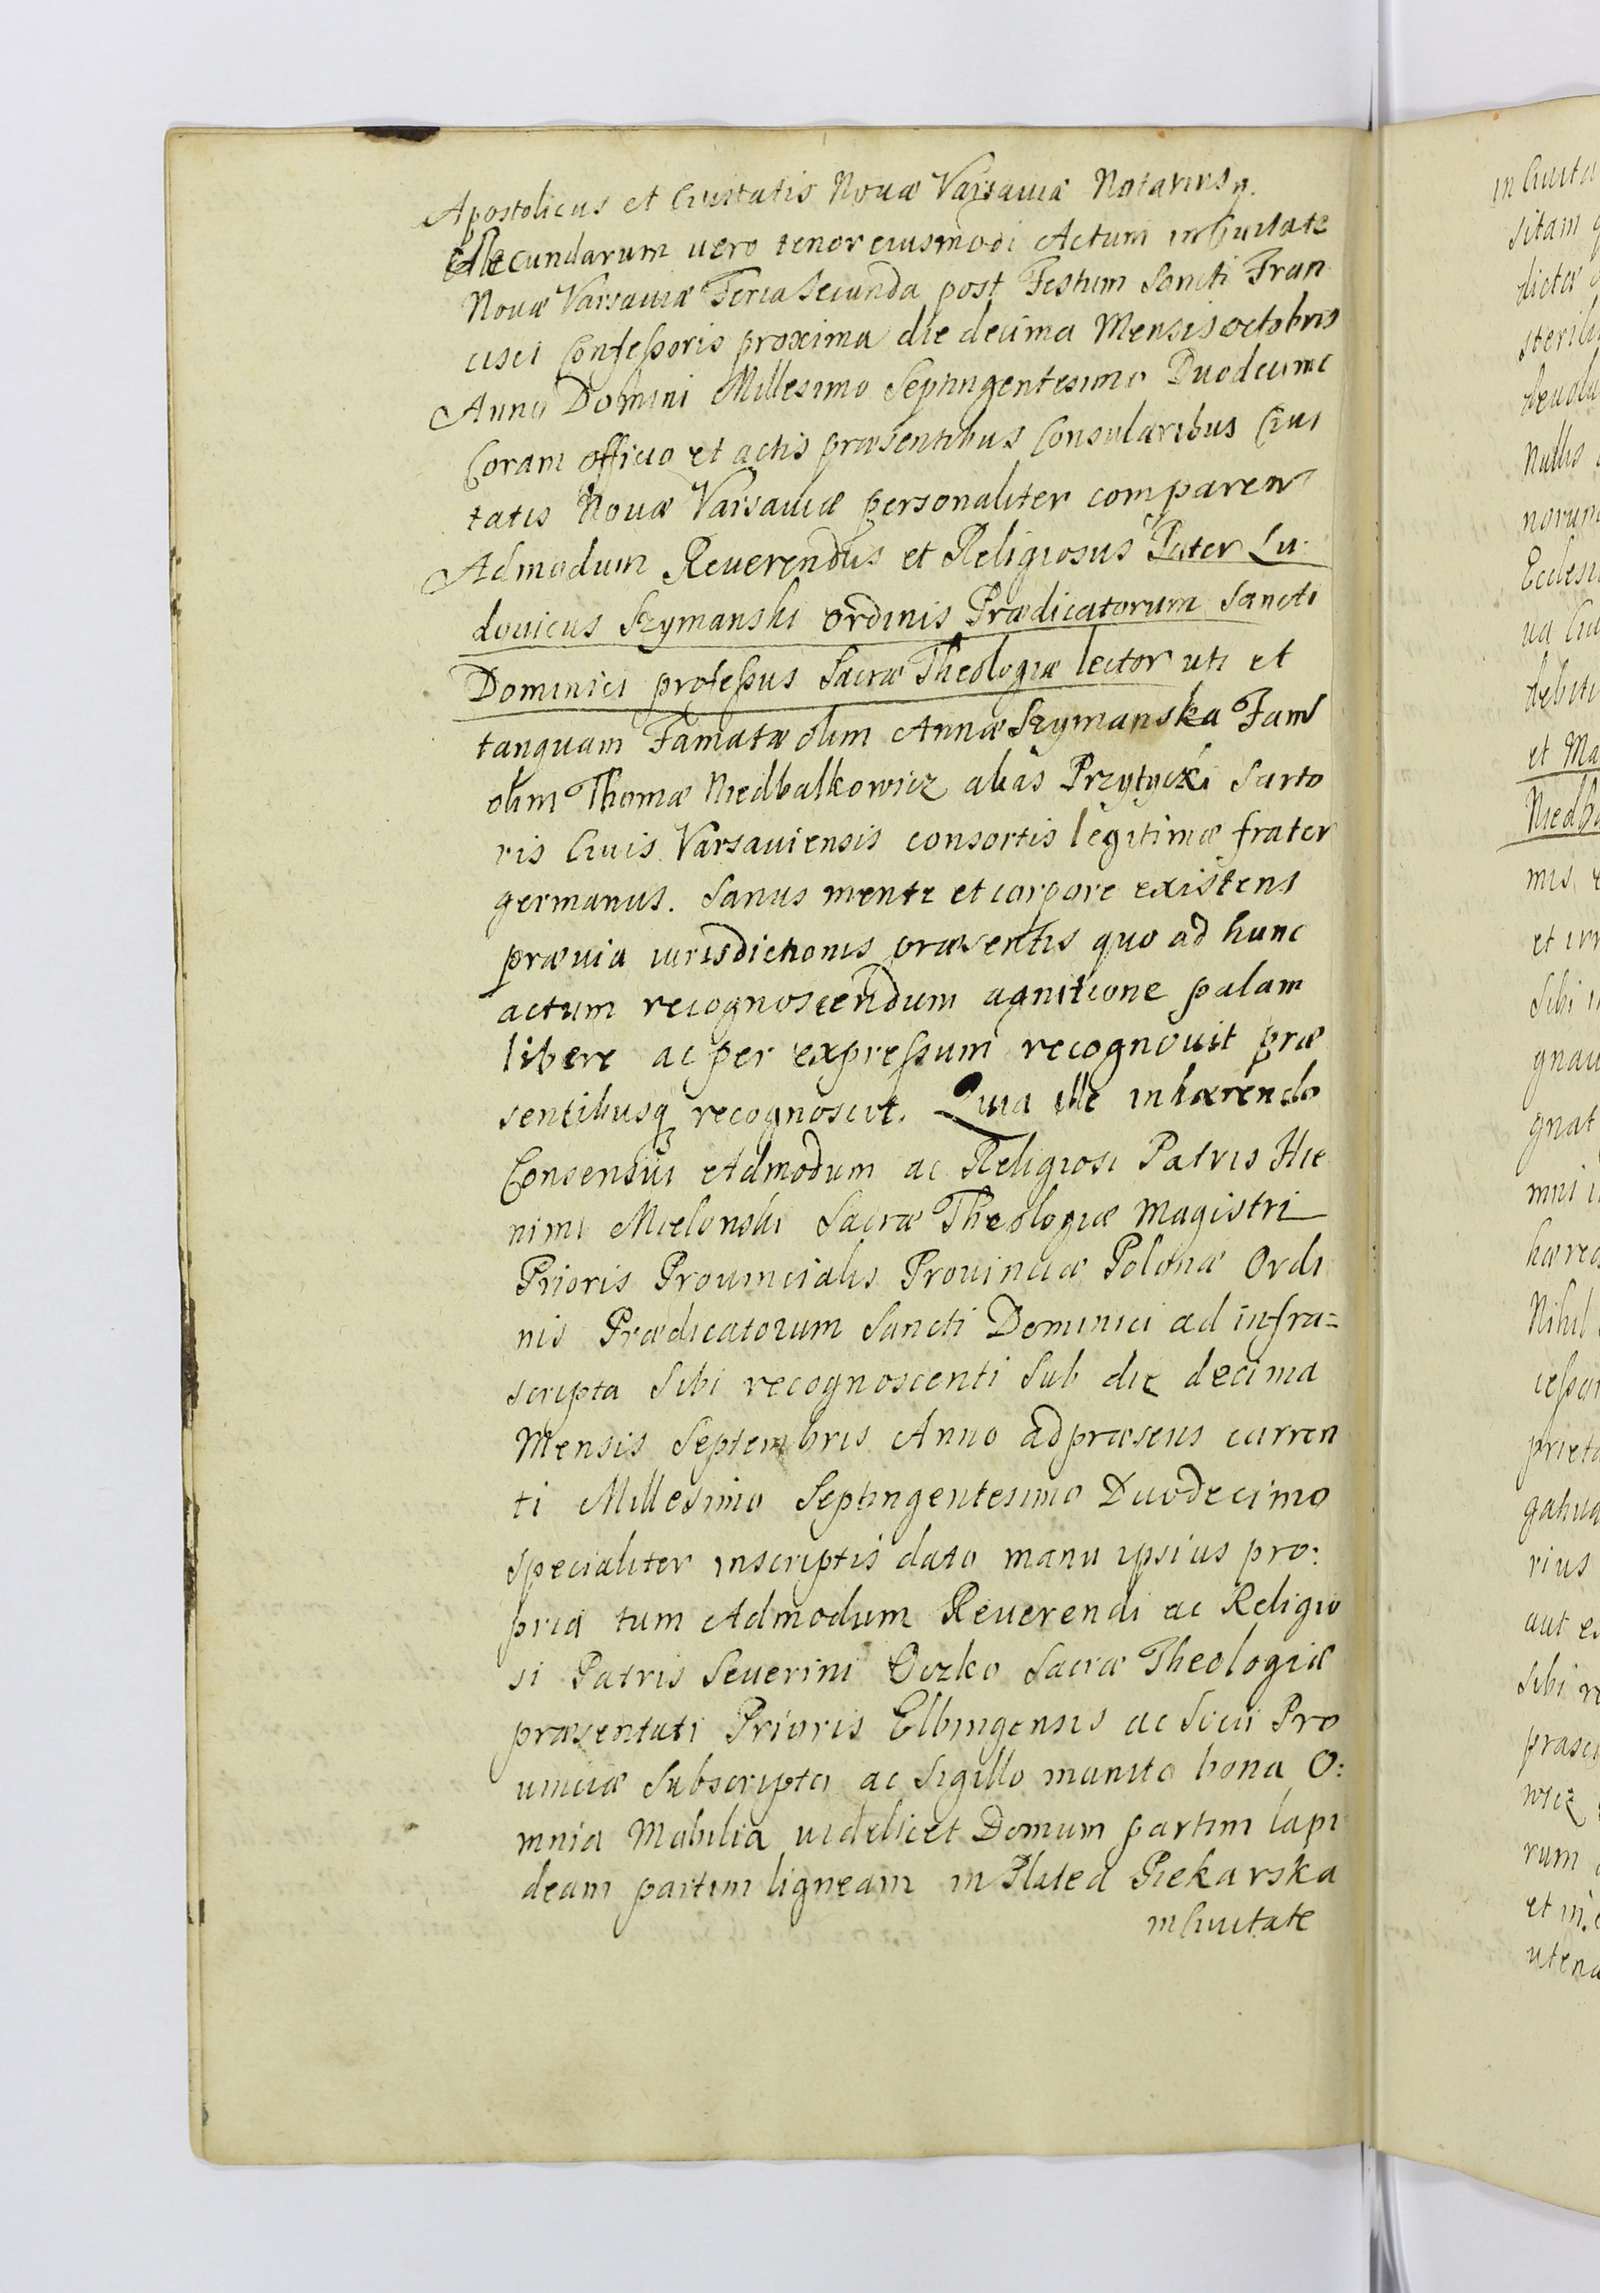 Apostolicus et Civitatis Novæ Varsaviæ Notarius
Secundarum vero tenor eiusmodi Actum in Civitate
Novæ Varsaviæ Feria Secunda post Festum Sancti Fran
cisci Confeßoris proxima die decima Mensis Octobris
Anno Domini Millesimo Septingentesimo Duodecimo
Coram officio et actis præsentibus Consularibus Civi
tatis Novæ Varsaviæ personaliter comparens
Admodum Reverendus et Religiosus Pater Lu
dovicus Szymanski Ordinis Prædicatorum Sancti
Dominici profeßus Sacræ Theologiæ lector uti et
tanquam Famatæ olim Annæ Szymanska Fam
olim Thomæ Niedbalkowicz alias Przytycki Sarto
ris Civis Varsaviensis consortis legitimæ frater
germanus. Sanus mente et corpore existens
prævia iurisdictionis præsentis quo ad hunc
actum recognoscendum agnitione palam
libere ac per expreßum recognovit præ
sentibusq recognoscit. Quia ille inhærendo
Consensui Admodum ac Religiosi Patris Hie
nimi Mielonski Sacræ Theologiæ Magistri
Prioris Provincialis Provinciæ Polonæ Ordi
nis Prædicatorum Sancti Dominici ad infra=
scripta Sibi recognoscenti Sub die decima
Mensis Septembris Anno ad præsens curren
ti Millesimo Septingentesimo Duodecimo
specialiter inscriptis dato manu ipsius pro:
pria tum Admodum Reverendi ac Religio
si Patris Severini Oczko Sacræ Theologiæ
præsentati Prioris Elbingensis ac Socii Pro
vinciæ Subscripto ac Sigillo munito bona O:
mnia Mobilia videlicet Domum partim lapi
deam partim ligneam in Platea Piekarska
in Civitate